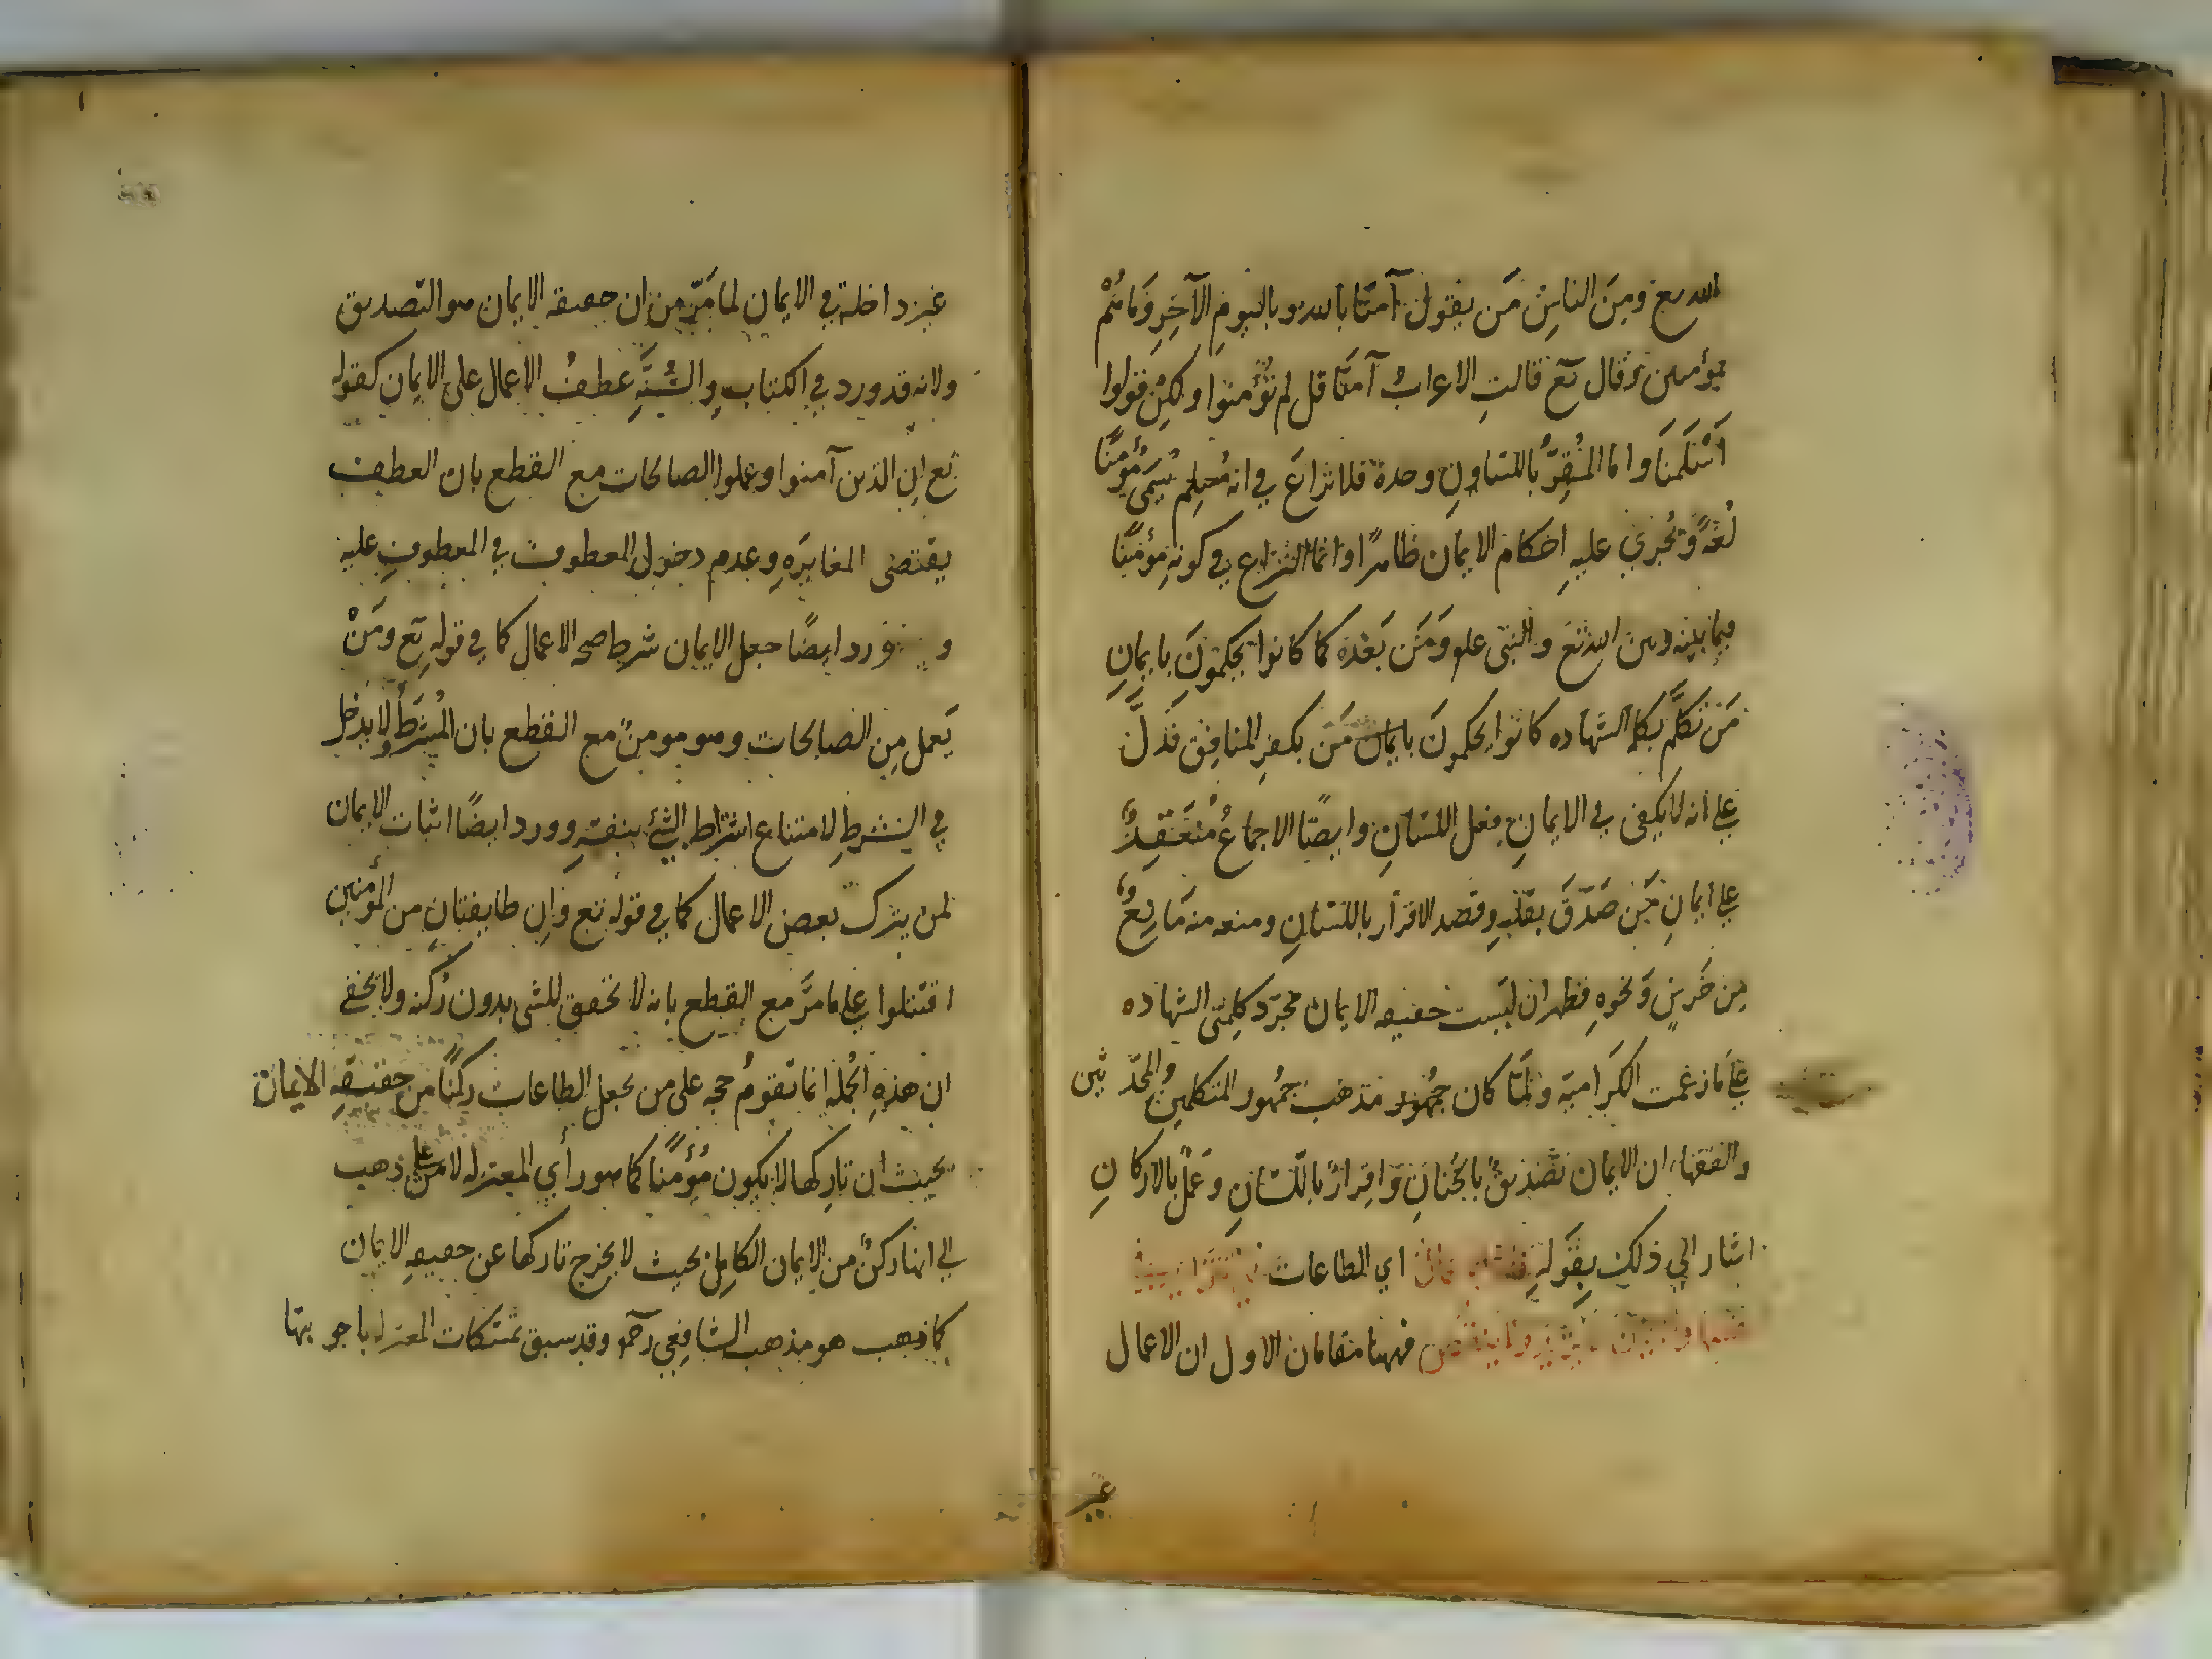 الله تع ومِنَ الناسِ مَن يقول آمنّا بالله وبالیومِ الآخِرِ وَمَا هُمْ
بمؤمنین وقال تع قالتِ الاعرابُ آمنّا قل لم تُؤمنوا ولكِنْ قولوا
اَسْلَمنَا واما المُقِرُّ باللسانِ وحدهُ فلا نزاعَ في انه يُسَمّى مُؤمِنًا
لُغةً وتُجرَي عليهِ احكام الايمان ظاهرًا وانما النزاع في كونِهِ مؤمنًا
فيما بينه وبين الله تع والنبى علم ومَن بَعْدَهُ كما كانوا يحكمونَ بايمانِ
مَن تكلَّم بكلمة الشهاده كانوا يحكمونَ بكفرِ المنافِق فدَلَّ
على انه لا يكفى في الايمانِ فعل اللسانِ وايضًا الاجماعُ مُنعَقِدٌ
على ايمانِ مَن صَدّقَ بقلبِهِ وقصد الاقرار باللسانِ ومنعه منه مَانِعٌ
مِن خَرسٍ وَنحوِهِ فظهر ان لَيست حقيقه الايمان مجرّد كلِمتَي الشهاده
على مَا زعمت الكرَامية ولمّا كان مَذهَب جُمْهور المتكلمين والمحدّثين
والفقهاء ان الايمان تصْديقٌ بالجَنانِ وَاِقرَارٌ باللّسَانِ وَعملٌ بالاركانِ
اشار الي ذلك بِقَولِهِ فاما الاعمال اي الطاعات فهي تتزايد في
نفسها والايمان لا يزيد ولا ينقص فههنا مقامان الاول ان الاعمال
غير
غير داخلة في الايمان لما مَرّ مِن ان حقيقة الايمان هو التصديق
ولانه قد ورد في الكتاب والسُّنَّةِ عطفُ الاعمال على الايمان كقوله
تع ان الذين آمنوا وعملوا الصالحات مع القطع بان العطف
يقتضى المغايَرَهِ وعدم دخول المعطوف في المعطوفِ عليه
و ورد ايضًا جعل الايمان شرط صحه الاعمال كما في قوله تع ومَنْ
يَعمل مِن الصالحات وهو مومنٌ مع القطع بان المُشرَطَ ولا يدخل
في الشرطِ لامتناع اشتراط الشئ بنفسهِ وورد ايضًا اثبات الايمان
لمن يترك بعض الاعمال كما في قوله تع وان طايفتان من المؤمنين
اقتتلوا على مَا مرّ مع القطع بانه لا تحقق للشى بدون رُكنِه ولا يخفى
ان هذهِ الجُمله انما تقومُ حجه على من يجعل الطاعات ركنًا من حقيقةِ الايمان
بحيث ان تارِكها لا يكون مُؤمنًا كما هو رأي المعتزله لا على مَن ذهب
الى انها ركنٌ من الايمان الكامِل بحيث لا يخرج تاركها عن حقيقهِ الايمان
كما ذهب هو مذهب الشافعي رحمه وقد سبق تمسّكات المعتزله باجوبتها